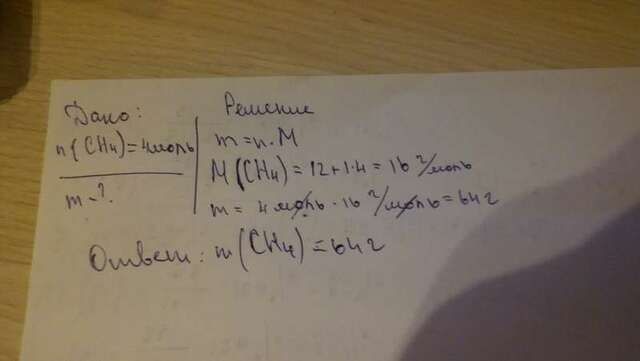 Дано:
n(CH4)=4моль
m-?
Решение
m=n.M
M(CH4)=12+1.4=16 г/моль
m= 4моль.16 г/моль=64г
Ответ: m(CH4)=64г